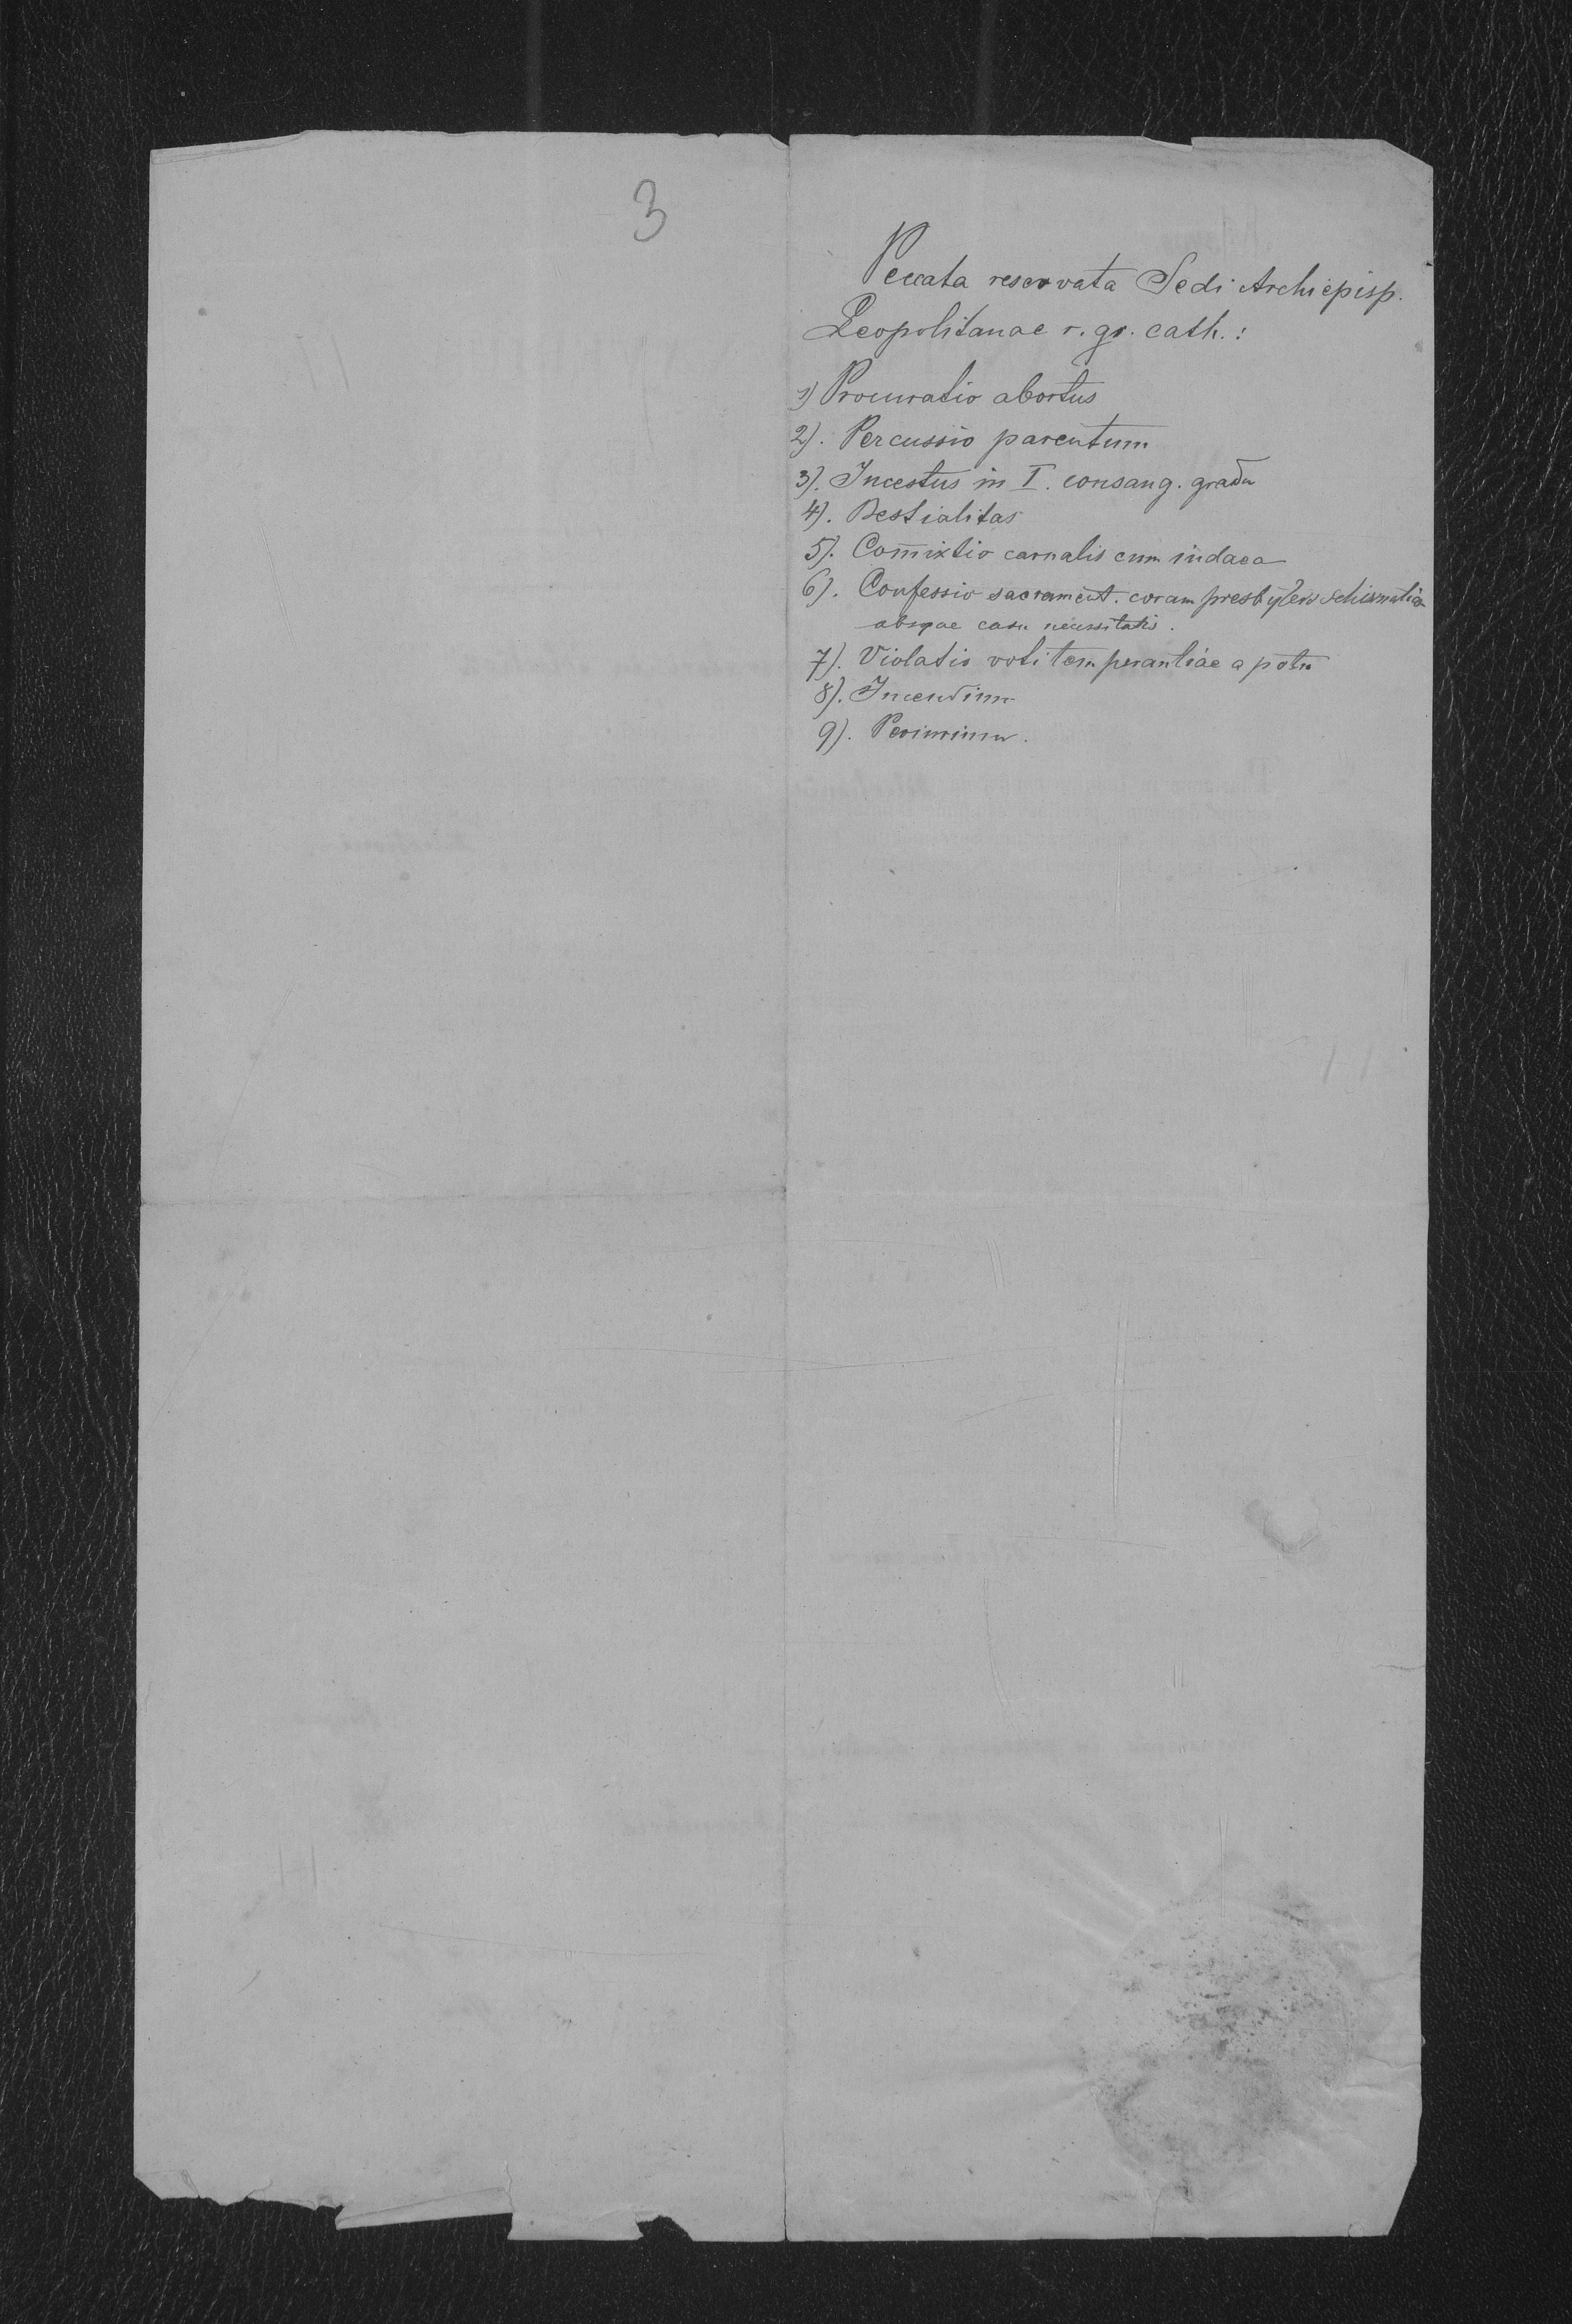 3
Peccata reservata Sedi Archiepisp.
Leopolitanae r. gr. cath. :
1) Procuratio abortus
2). Percussio parentum
3). Incestus in I. consang. gradu
4). Bestialitas
5). Com̄ixtio carnalis cum iudaea
6). Confessio sacrament. coram presbytero schismatico
absque casu necessitatis.
7). Violatio voti temperantiae a potu
8). Incendium
9). Periurium.